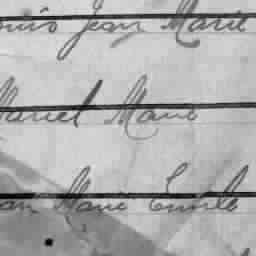 ouis Jean Marie
arcel Marie
an Marie Emile